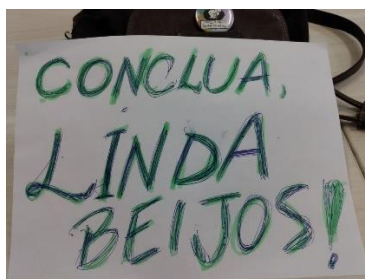 CONCLUA,
LINDA
BEIJOS!